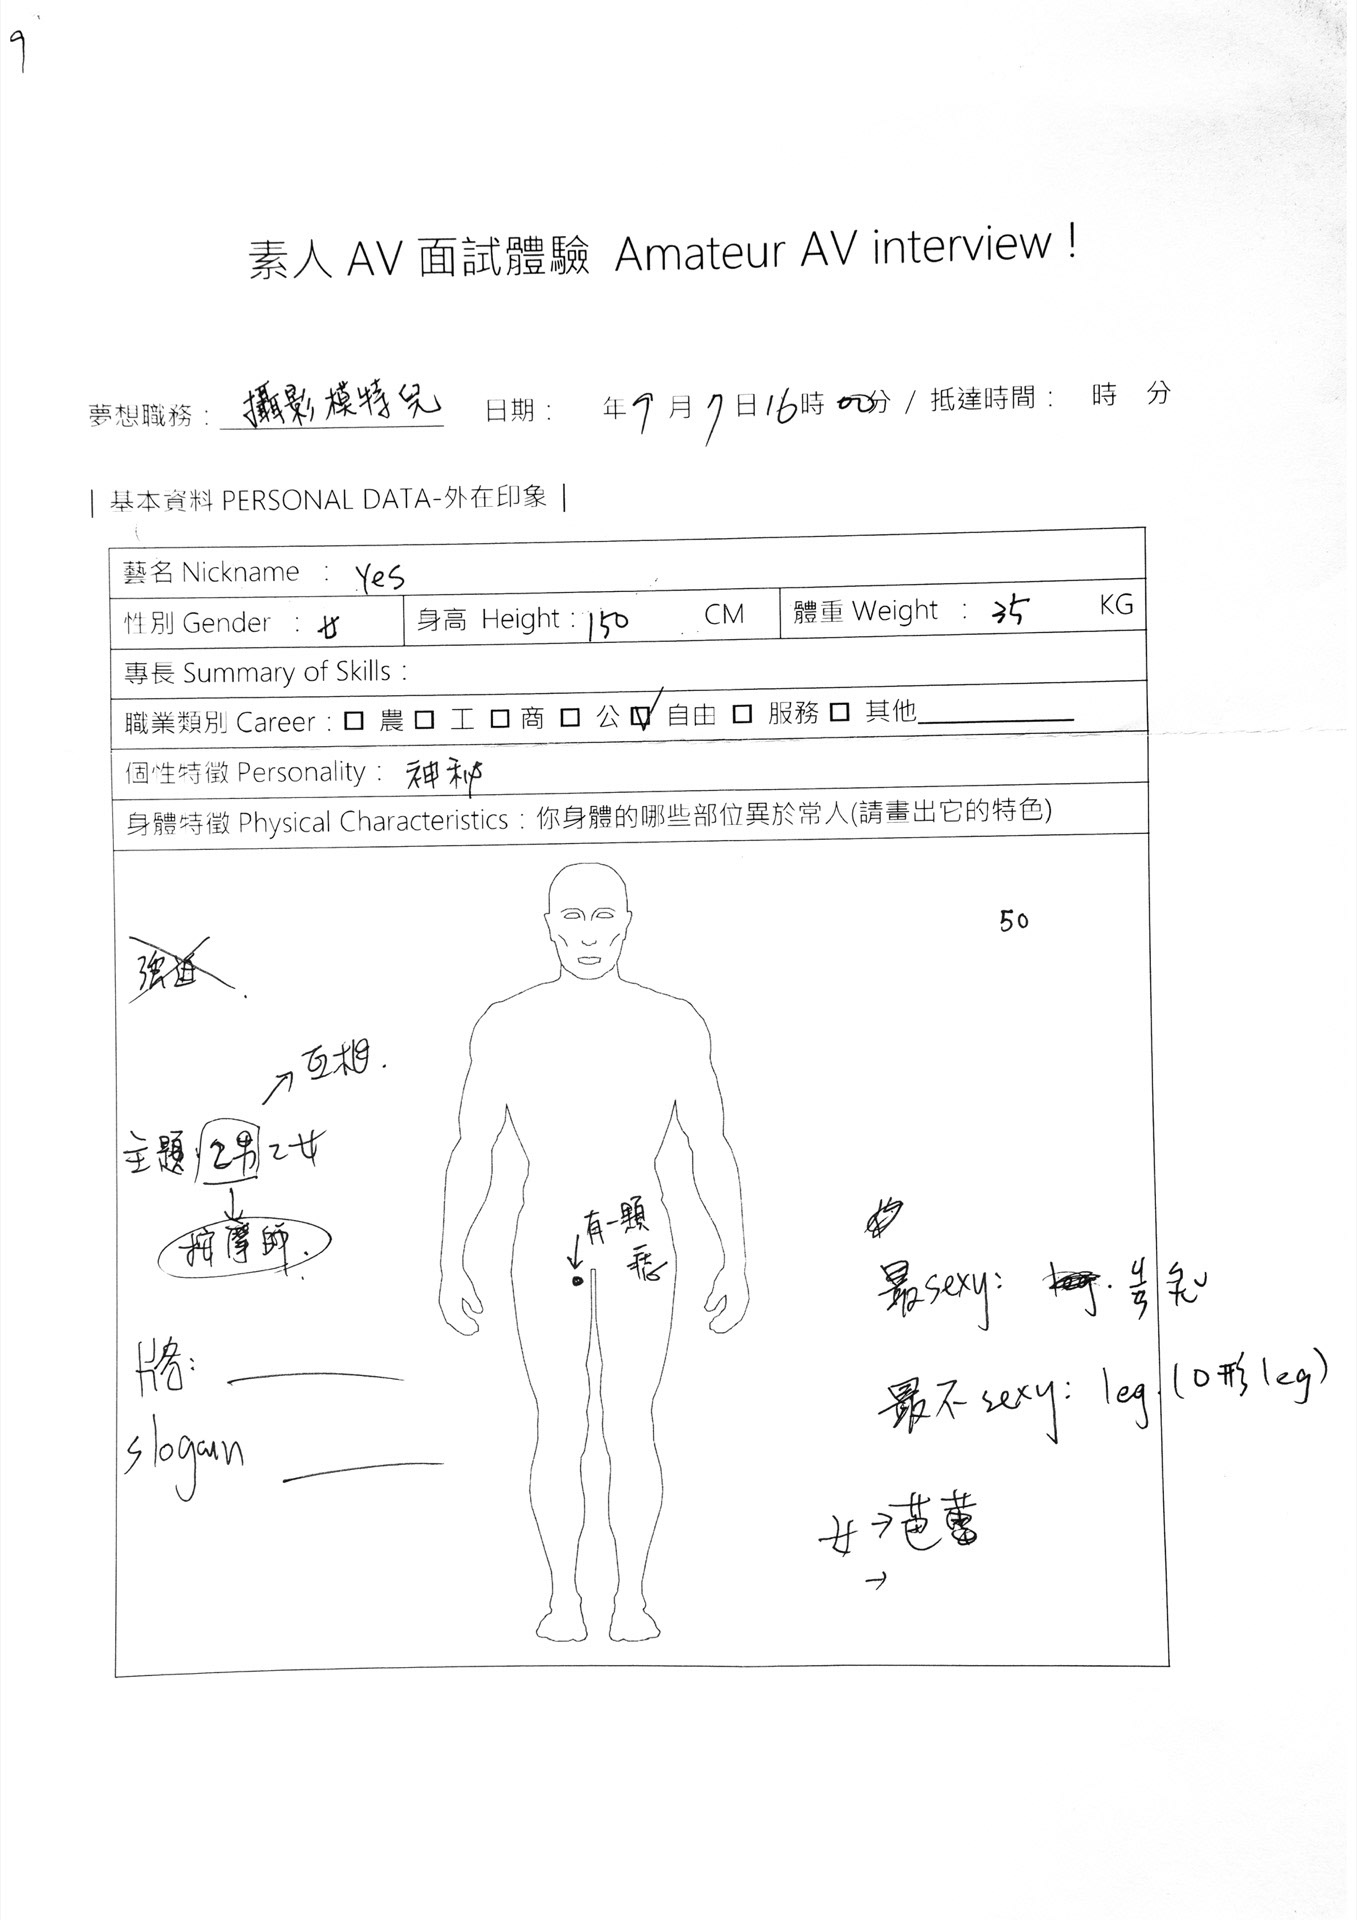 9
素人 AV 面試體驗 Amateur AV interview !
夢想職務： 攝影模特兒 日期： 年 9 月 7 日 16 時 00 分 / 抵達時間： 時 分
| 基本資料 PERSONAL DATA-外在印象 |
藝名 Nickname ： Yes
性別 Gender ：女 身高 Height：150 CM 體重 Weight ：35 KG
專長 Summary of Skills：
職業類別 Career：☐ 農 ☐ 工 ☐ 商 ☐ 公 ☑ 自由 ☐ 服務 ☐ 其他
個性特徵 Personality： 神秘
身體特徵 Physical Characteristics：你身體的哪些部位異於常人(請畫出它的特色)
50
強迫
→ 互相.
主題 2男2女
按摩師.
有一顆
痣
最sexy:
片名:
最不sexy: leg. (O形leg)
slogan
女→芭蕾
→